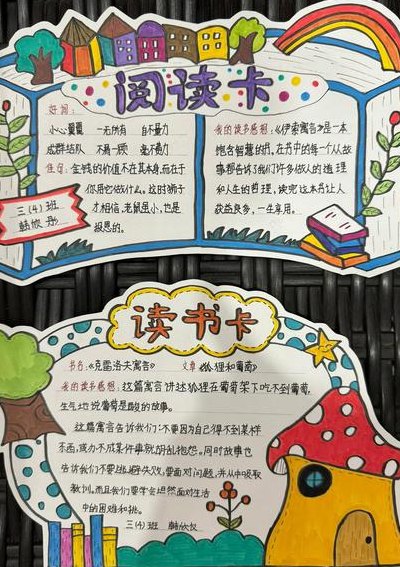 阅读卡
好词:
小心翼翼 一无所有 自不量力
成群结队 不屑一顾 毫不费力
佳句:金钱的价值不在其本身,而在于
你用它做什么。这时狮子
才相信,老鼠虽小,也是
报恩的。
三(4)班
韩欣彤
我的读多感想:《伊索寓言》是一本
饱含智慧的书,在书中的每一个人故
事都告诉了我们许多做人的道理
和人生的哲理,读完这本书让人
获益良多,一生享用。
读书卡
书名:《克雷洛夫寓言》 文章《狐狸和葡萄》
我的读多感想:这篇寓言讲述狐狸在葡萄架下吃不到葡萄,
生气地说葡萄是酸的故事。
这篇寓言告诉我们:不要因为自己得不到某样
东西,或办不成某件事就胡乱抱怨。同时故事也
告诉我们不要逃避失败,要面对问题,并从中吸取
教训。而且我们要学会坦然面对生活
中的困难和挑。
三(4)班 韩欣